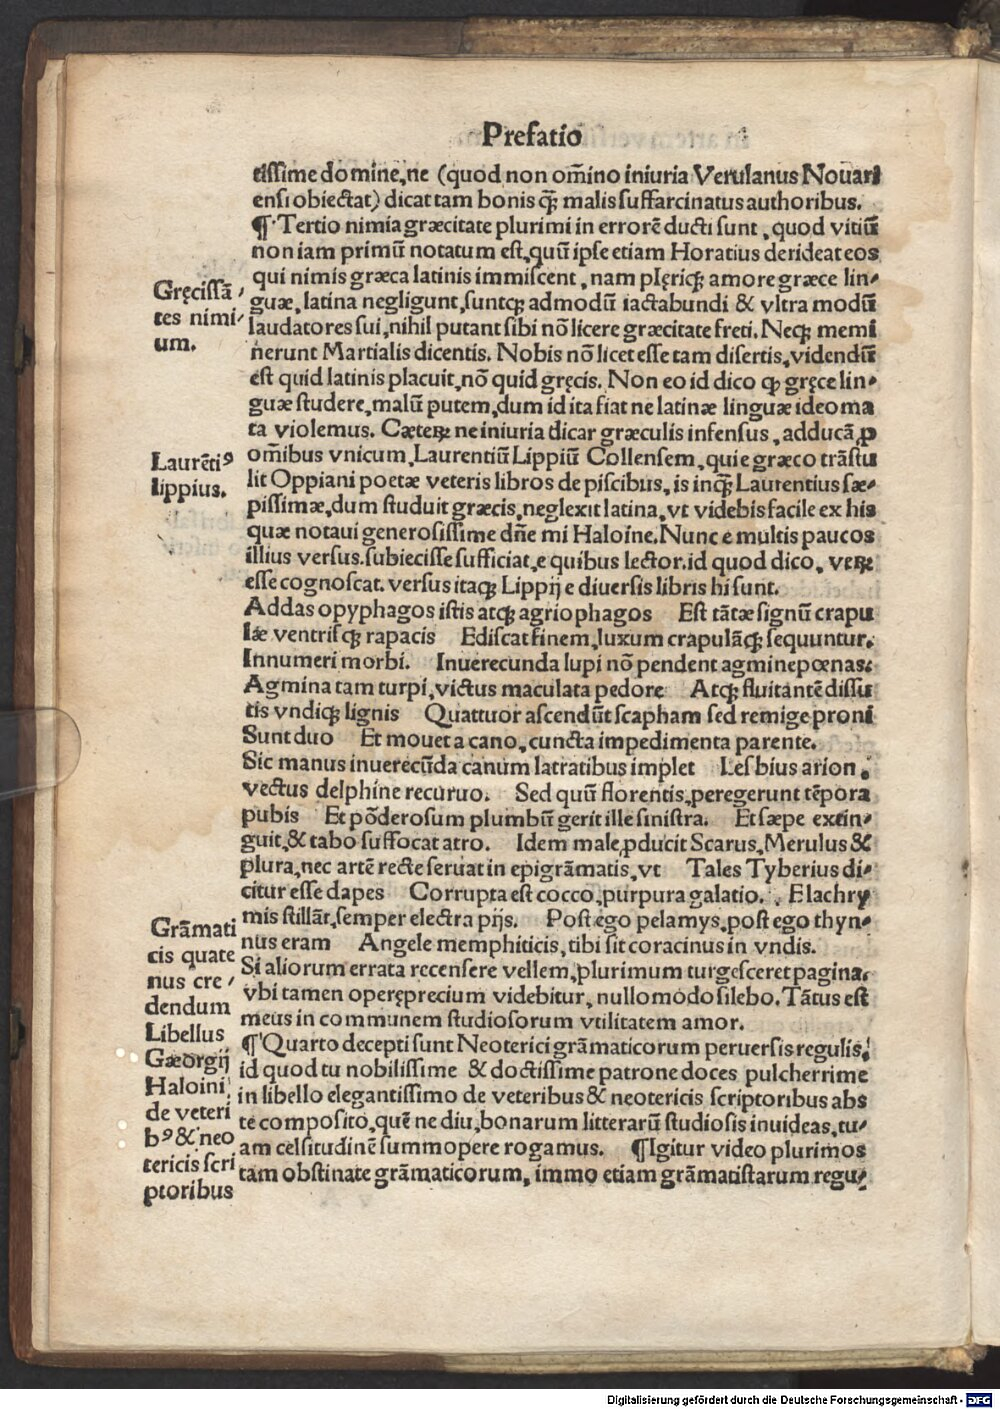 Prefatio
tissime domine, ne (quod non om̃ino iniuria Verulanus Nouari
ensi obiectat) dicat tam bonis q̃ꝫ malis suffarcinatus authoribus.
¶ Tertio nimia græcitate plurimi in errorē ducti sunt, quod vitiū
non iam primū notatum est, quū ipse etiam Horatius derideat eos
qui nimis græca latinis immiscent, nam plęriqꝫ amore græce lin-
guæ, latina negligunt, suntqꝫ admodū iactabundi & vltra modū
laudatores sui, nihil putant sibi nō licere græcitate freti. Neqꝫ memi
nerunt Martialis dicentis. Nobis nō licet esse tam disertis, videndū
est quid latinis placuit, nō quid gręcis. Non eo id dico ꝙ gręce lin-
guæ studere, malū putem, dum id ita fiat ne latinæ linguæ ideoma
ta violemus. Cæteꝝ ne iniuria dicar græculis infensus, adducā ꝓ
om̃ibus vnicum, Laurentiū Lippiū Collensem, qui e græco trāstu
lit Oppiani poetæ veteris libros de piscibus, is inq̃ꝫ Laurentius sæ-
pissimæ, dum studuit græcis, neglexit latina, vt videbis facile ex his
quæ notaui generosissime dñe mi Haloine. Nunc e multis paucos
illius versus. subiecisse sufficiat, e quibus lector. id quod dico, veꝝ
esse cognoscat. versus itaqꝫ Lippij e diuersis libris hi sunt.
Addas opyphagos istis atqꝫ agriophagos Est tātæ signū crapu
læ ventrisqꝫ rapacis Ediscat finem, luxum crapulāqꝫ sequuntur.
Innumeri morbi. Inuerecunda lupi nō pendent agmine pœnas.
Agmina tam turpi, victus maculata pedore Atqꝫ fluitantē dissu
tis vndiqꝫ lignis Quattuor ascendūt scapham sed remige proni
Sunt duo Et mouet a cano, cuncta impedimenta parente.
Sic manus inuerecūda canum latratibus implet Lesbius arion.
vectus delphine recuruo. Sed quū florentis, peregerunt tēpora
pubis Et pōderosum plumbū gerit ille sinistra. Et sæpe extin-
guit, & tabo suffocat atro. Idem male ꝓducit Scarus, Merulus &
plura, nec artē recte seruat in epigrāmatis, vt Tales Tyberius di-
citur esse dapes Corrupta est cocco, purpura galatio. E lachry
mis stillāt, semper electra pijs. Post ego pelamys, post ego thyn-
nus eram Angele memphiticis, tibi sit coracinus in vndis.
Si aliorum errata recensere vellem, plurimum turgesceret pagina.
vbi tamen operęprecium videbitur, nullo modo silebo. Tātus est
meus in communem studiosorum vtilitatem amor.
¶ Quarto decepti sunt Neoterici grāmaticorum peruersis regulis,
id quod tu nobilissime & doctissime patrone doces pulcherrime
in libello elegantissimo de veteribus & neotericis scriptoribus abs
te composito, quē ne diu, bonarum litterarū studiosis inuideas, tu-
am celsitudinē summopere rogamus. ¶ Igitur video plurimos
tam obstinate grāmaticorum, immo etiam grāmatistarum regu-
Gręcissā-
tes nimi-
um.
Laurētiꝰ
lippius.
Grāmati
cis quate
nus cre-
dendum
Libellus
Gæorgij
Haloini
de veteri
bꝰ & neo
tericis scri
ptoribus
Digitalisierung gefördert durch die Deutsche Forschungsgemeinschaft - DFG